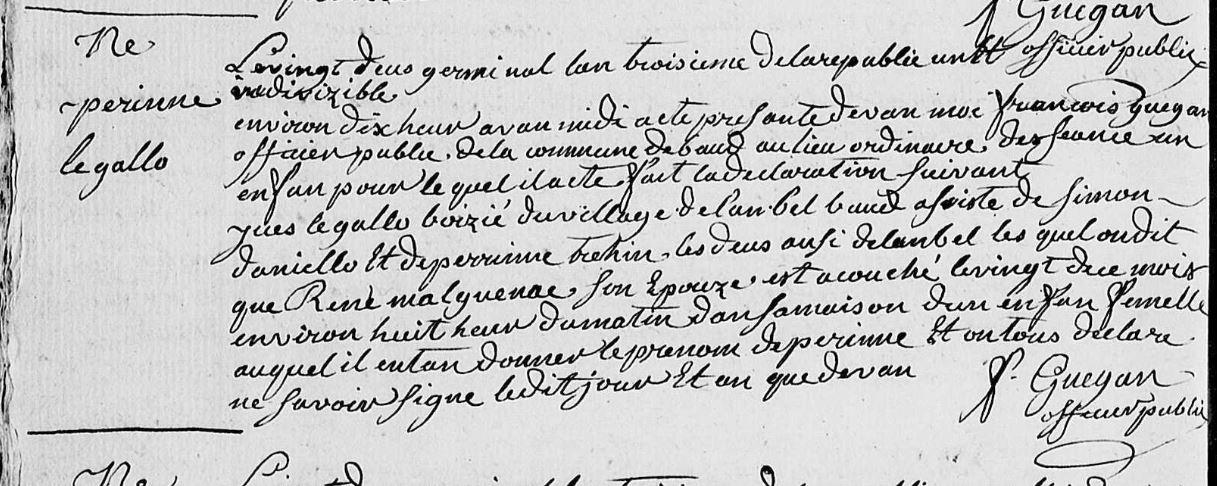 f Guegan
officier public
Ne
perinne
le gallo
Le vingt deus germinal lan troisieme de la republic un et
indivizible
environ dix heur avan midi acte presante devan moi francois guegan
officier public de la commune de baud au lieu ordinaire des seance un
enfan pour le quel il a ete fait la declaration suivant
yves le gallo boizié du village de lanbel baud asiste de simon
daniello et de perrinne trehin les deus ausi de lanbel les quel on dit
que René malguenac son Epouze est acouché le vingt de ce mois
environ huit heur du matin dan sa maison dun enfan femelle
auquel il entan donner le prenom de perinne Et on tous declare
ne savoir signe le dit jour Et an que devan
f. Guegan
officier public
Ne